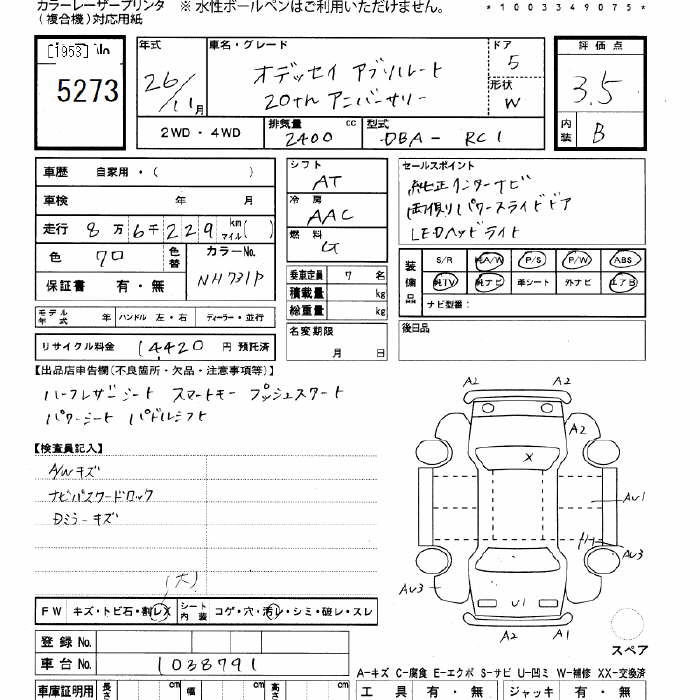 カラーレーザープリンタ ※ 水性ボールペンはご利用いただけません。
(複合機)対応用紙
* 1 0 0 3 3 4 9 0 7 5 *
[1953]
5273
年式 車名・グレード ドア 評価点
26/11月 オデッセイ アブソルート 5 3.5
20th アニバーサリー 形状 W
2WD・4WD 排気量 2400 cc 型式 DBA- RC1 内装 B
車歴 自家用・( )
車検 年 月
走行 8万6千229km マイル( )
色 クロ 色替 カラーNo. NH731P
保証書 有・無
シフト AT
冷房 AAC
燃料 G
乗車定員 7名
積載量 kg
総重量 kg
セールスポイント
純正インターナビ
両側パワースライドドア
LEDヘッドライト
装備品 S/R 純A/W P/S P/W ABS
純TV 純ナビ 革シート 外ナビ エアB
ナビ型番:
モデル年式 年 ハンドル 左・右 ディーラー・並行
名変期限 月 日
後日品
リサイクル料金 14420円 預託済
【出品店申告欄(不良箇所・欠品・注意事項等)】
ハーフレザーシート スマートキー プッシュスタート
パワーシート パドルシフト
【検査員記入】
A/Wキズ
ナビパスワードロック
Dミラーキズ
(大)
FW キズ・トビ石・割レX シート内装 コゲ・穴・汚レ・シミ・破レ・スレ
A2 A2
A2
X
AU1
AU3
AU3
U1
A2 A1
スペア
登録No.
車台No. 1038791
A-キズ C-腐食 E-エクボ S-サビ U-凹ミ W-補修 XX-交換済
車庫証明用 長さ cm 幅 cm 高さ cm
工具 有・無 ジャッキ 有・無